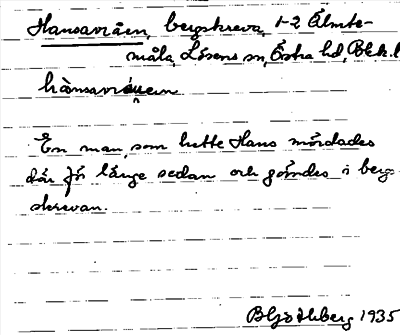 Hansavråen, bergskreva, 1-2 Älmte-
måla, Lösens sn, Östra hd, Blek. l
En man som hette Hans mördades
där för länge sedan och gömdes i bergs
skrevan.
1935